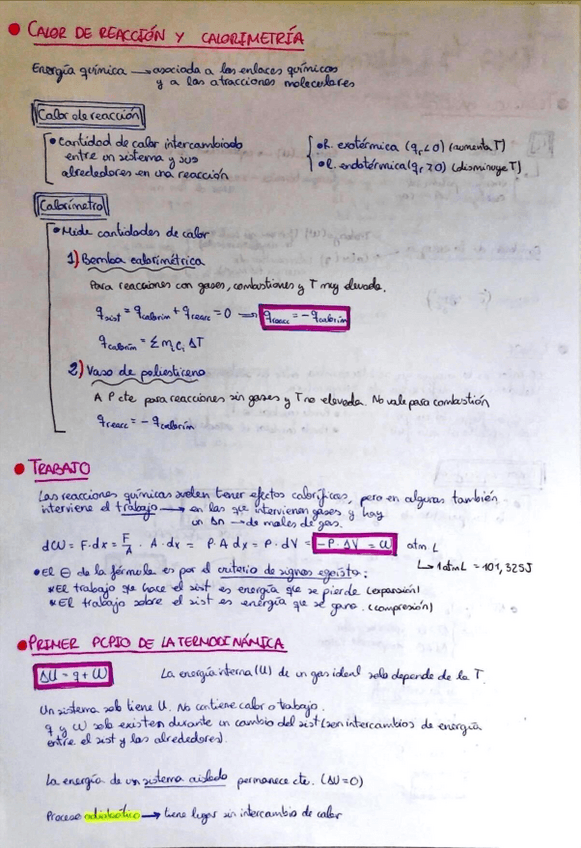 • CALOR DE REACCIÓN Y CALORIMETRÍA
Energía química → asociada a los enlaces químicos
y a las atracciones moleculares
Calor de reacción
• Cantidad de calor intercambiado
entre un sistema y sus
alrededores en una reacción
• R. exotérmica (qr < 0) (aumenta T)
• R. endotérmica (qr > 0) (disminuye T)
Calorímetro
• Mide cantidades de calor
1) Bomba calorimétrica
Para reacciones con gases, combustiones y T muy elevada.
q sist = q calorim + q reacc = 0 → q reacc = - q calorim
q calorim = Σ mi ci ΔT
2) Vaso de poliestireno
A P cte para reacciones sin gases y T no elevada. No vale para combustión
q reacc = - q calorim
• TRABAJO
Las reacciones químicas suelen tener efectos caloríficos, pero en algunas también
interviene el trabajo → en las que intervienen gases y hay
un Δn → de moles de gas.
dW = F · dx = F/A · A · dx = P · A dx = P · dV = - P · ΔV = W atm L
↳ 1 atm L = 101,325 J
• El ⊖ de la fórmula es por el criterio de signos egoísta:
* El trabajo que hace el sist es energía que se pierde (expansión)
* El trabajo sobre el sist es energía que se gana. (compresión)
• PRIMER PCPIO DE LA TERMODINÁMICA
ΔU = q + W La energía interna (U) de un gas ideal solo depende de la T.
Un sistema solo tiene U. No contiene calor o trabajo.
q y W solo existen durante un cambio del sist (son intercambios de energía
entre el sist y los alrededores).
La energía de un sistema aislado permanece cte. (ΔU = 0)
Proceso adiabático → tiene lugar sin intercambio de calor